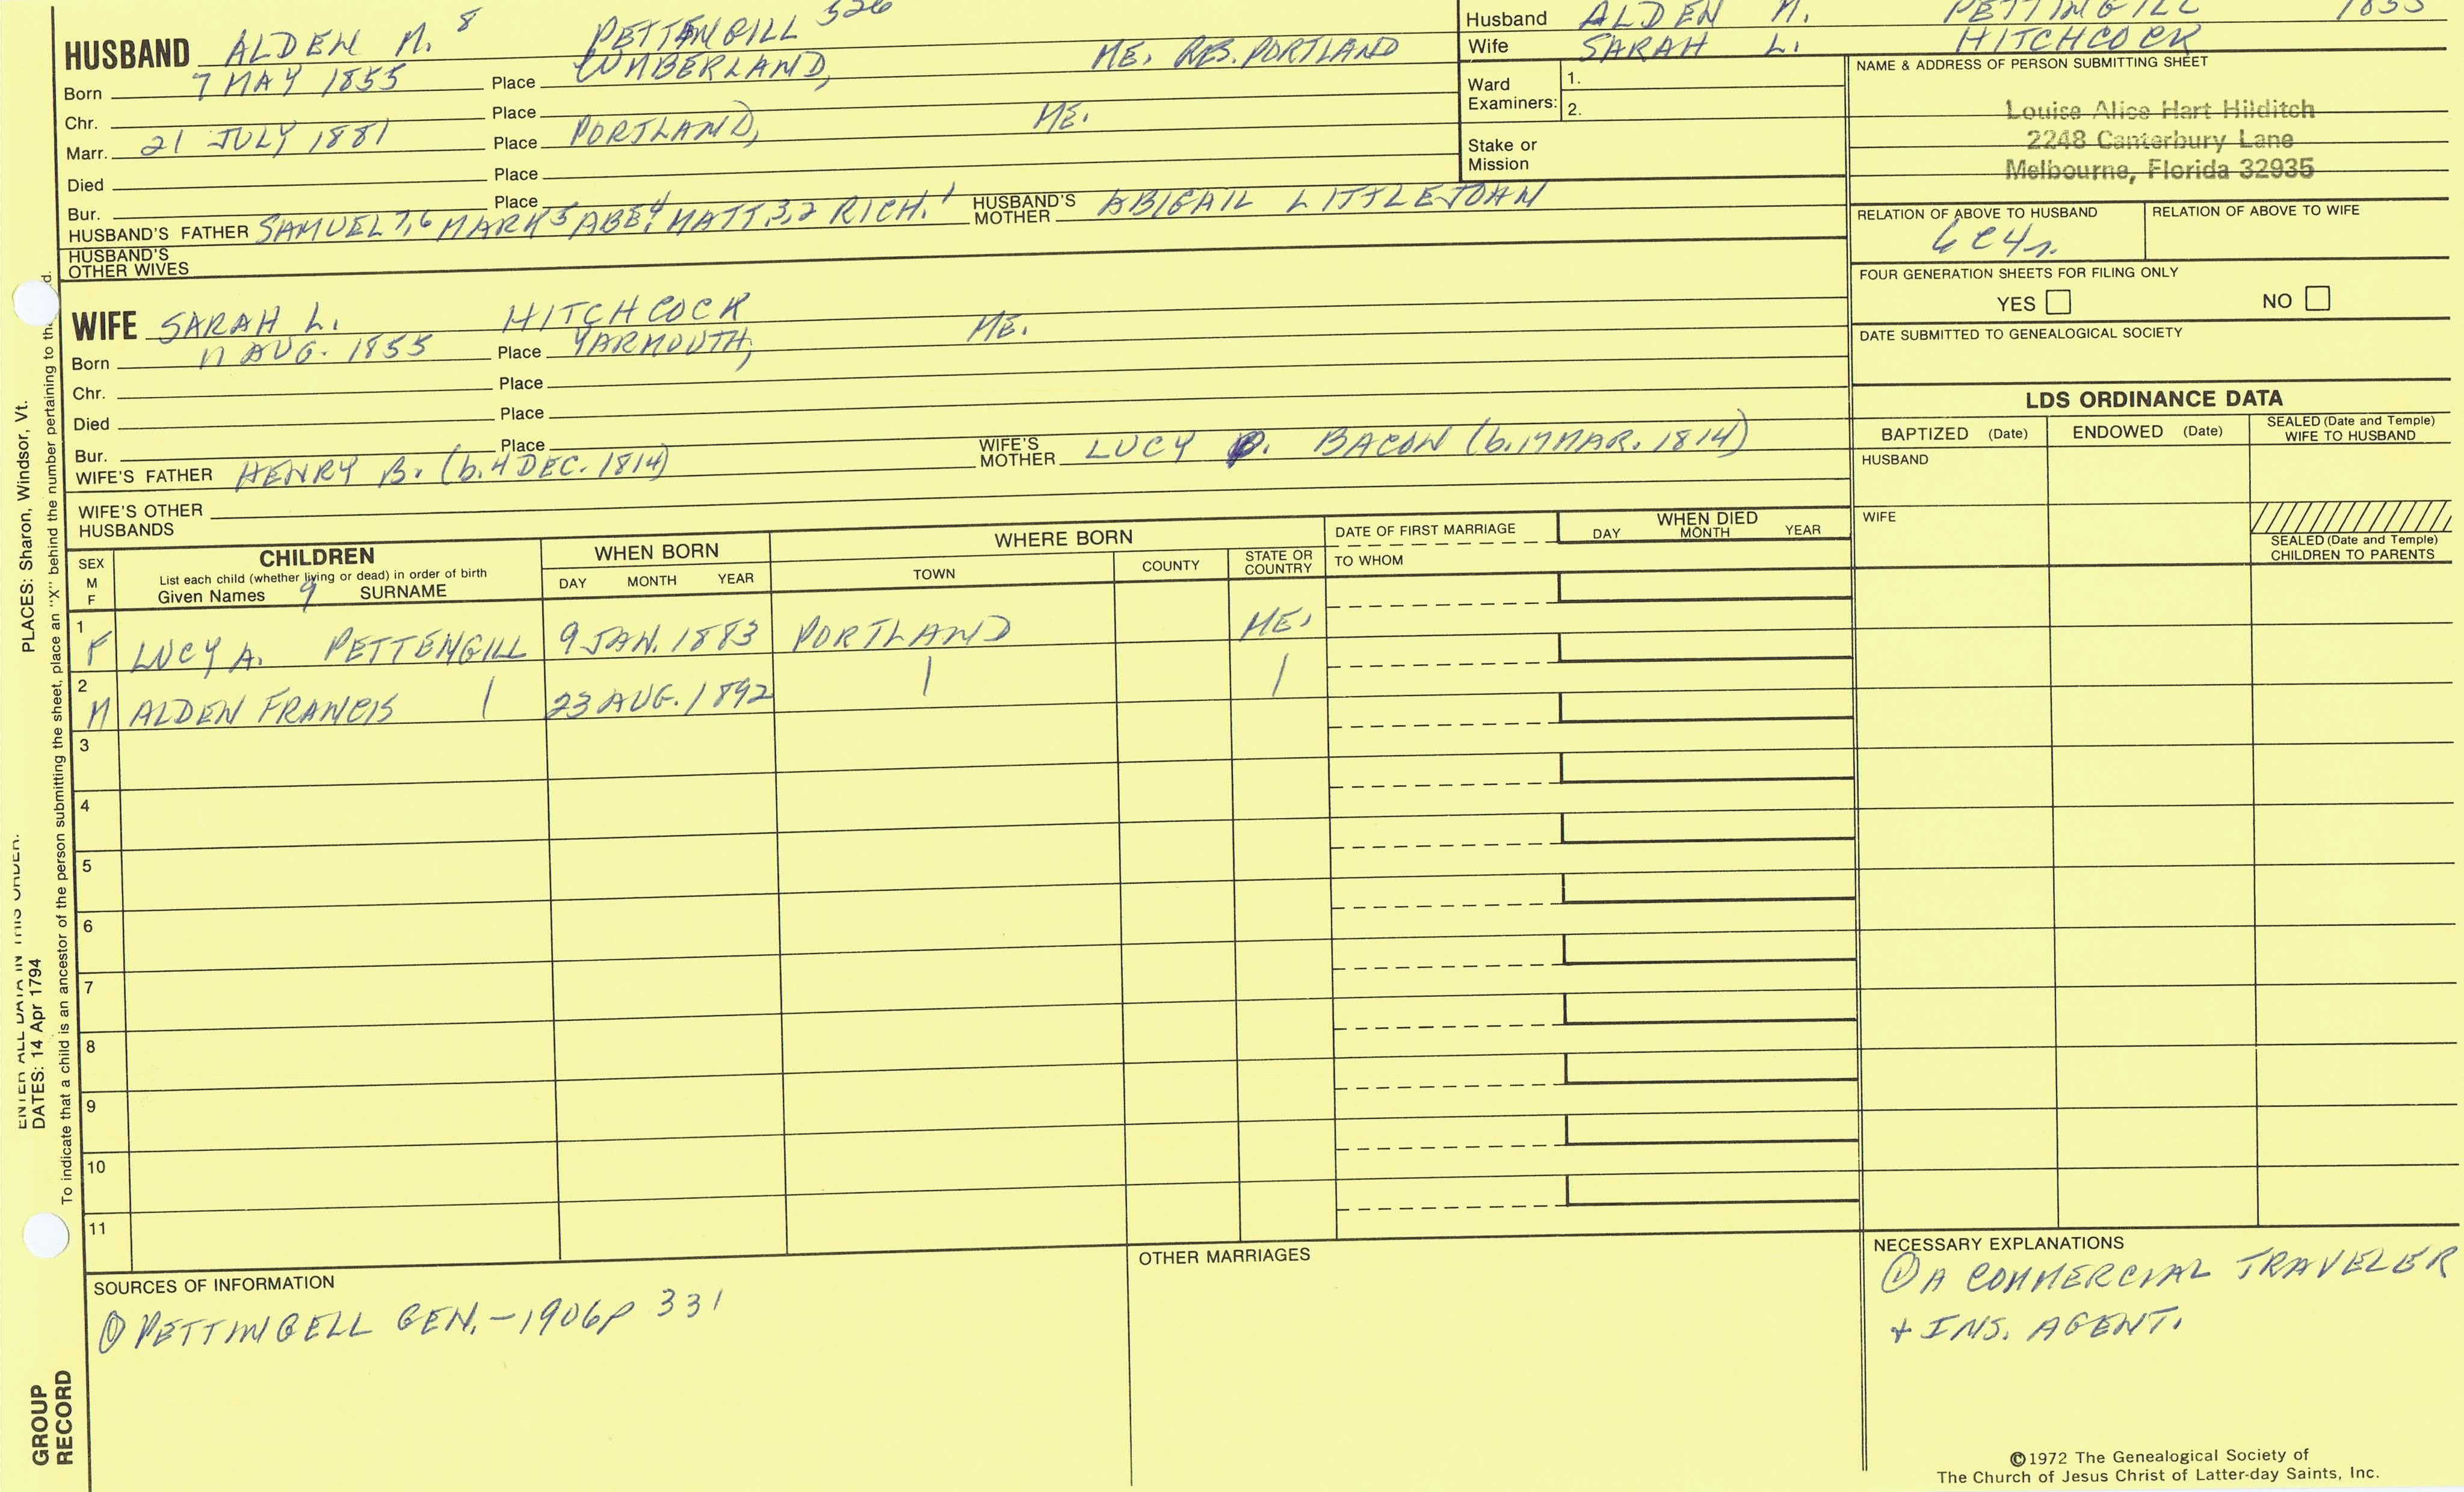 HUSBAND ALDEN M. 8 PETTENGILL 526
Born 7 MAY 1855 Place CUMBERLAND, ME. RES. PORTLAND
Chr. Place
Marr. 21 JULY 1881 Place PORTLAND, ME.
Died Place
Bur. Place
HUSBAND'S FATHER SAMUEL 7,6 MARK 5 ABE. 4 MATT. 3,2 RICH. 1 HUSBAND'S MOTHER ABIGAIL LITTLEJOHN
HUSBAND'S
OTHER WIVES
Husband ALDEN M. PETTINGILL 1855
Wife SARAH L. HITCHCOCK
Ward
Examiners:
1.
2.
Stake or
Mission
NAME & ADDRESS OF PERSON SUBMITTING SHEET
Louise Alice Hart Hilditch
2248 Canterbury Lane
Melbourne, Florida 32935
RELATION OF ABOVE TO HUSBAND RELATION OF ABOVE TO WIFE
6C4r
FOUR GENERATION SHEETS FOR FILING ONLY
YES NO
DATE SUBMITTED TO GENEALOGICAL SOCIETY
WIFE SARAH L. HITCHCOCK
Born 17 AUG. 1855 Place YARMOUTH, ME.
Chr. Place
Died Place
Bur. Place
WIFE'S FATHER HENRY B. (b. 4 DEC. 1814) WIFE'S MOTHER LUCY P. BACON (b. 17 MAR. 1814)
WIFE'S OTHER
HUSBANDS
LDS ORDINANCE DATA
BAPTIZED (Date) ENDOWED (Date) SEALED (Date and Temple) WIFE TO HUSBAND
HUSBAND
WIFE
SEALED (Date and Temple)
CHILDREN TO PARENTS
SEX
M
F
CHILDREN
List each child (whether living or dead) in order of birth
Given Names 9 SURNAME
WHEN BORN
DAY MONTH YEAR
WHERE BORN
TOWN COUNTY STATE OR COUNTRY
DATE OF FIRST MARRIAGE
TO WHOM
WHEN DIED
DAY MONTH YEAR
1 F LUCY A. PETTENGILL 9 JAN. 1883 PORTLAND ME.
2 M ALDEN FRANCIS | 23 AUG. 1892 | |
3
4
5
6
7
8
9
10
11
SOURCES OF INFORMATION
① PETTINGELL GEN. - 1906 p 331
OTHER MARRIAGES
NECESSARY EXPLANATIONS
① A COMMERCIAL TRAVELER
+ INS. AGENT.
©1972 The Genealogical Society of
The Church of Jesus Christ of Latter-day Saints, Inc.
ENTER ALL DATA IN THIS ORDER.
DATES: 14 Apr 1794 PLACES: Sharon, Windsor, Vt.
To indicate that a child is an ancestor of the person submitting the sheet, place an "X" behind the number pertaining to
GROUP
RECORD